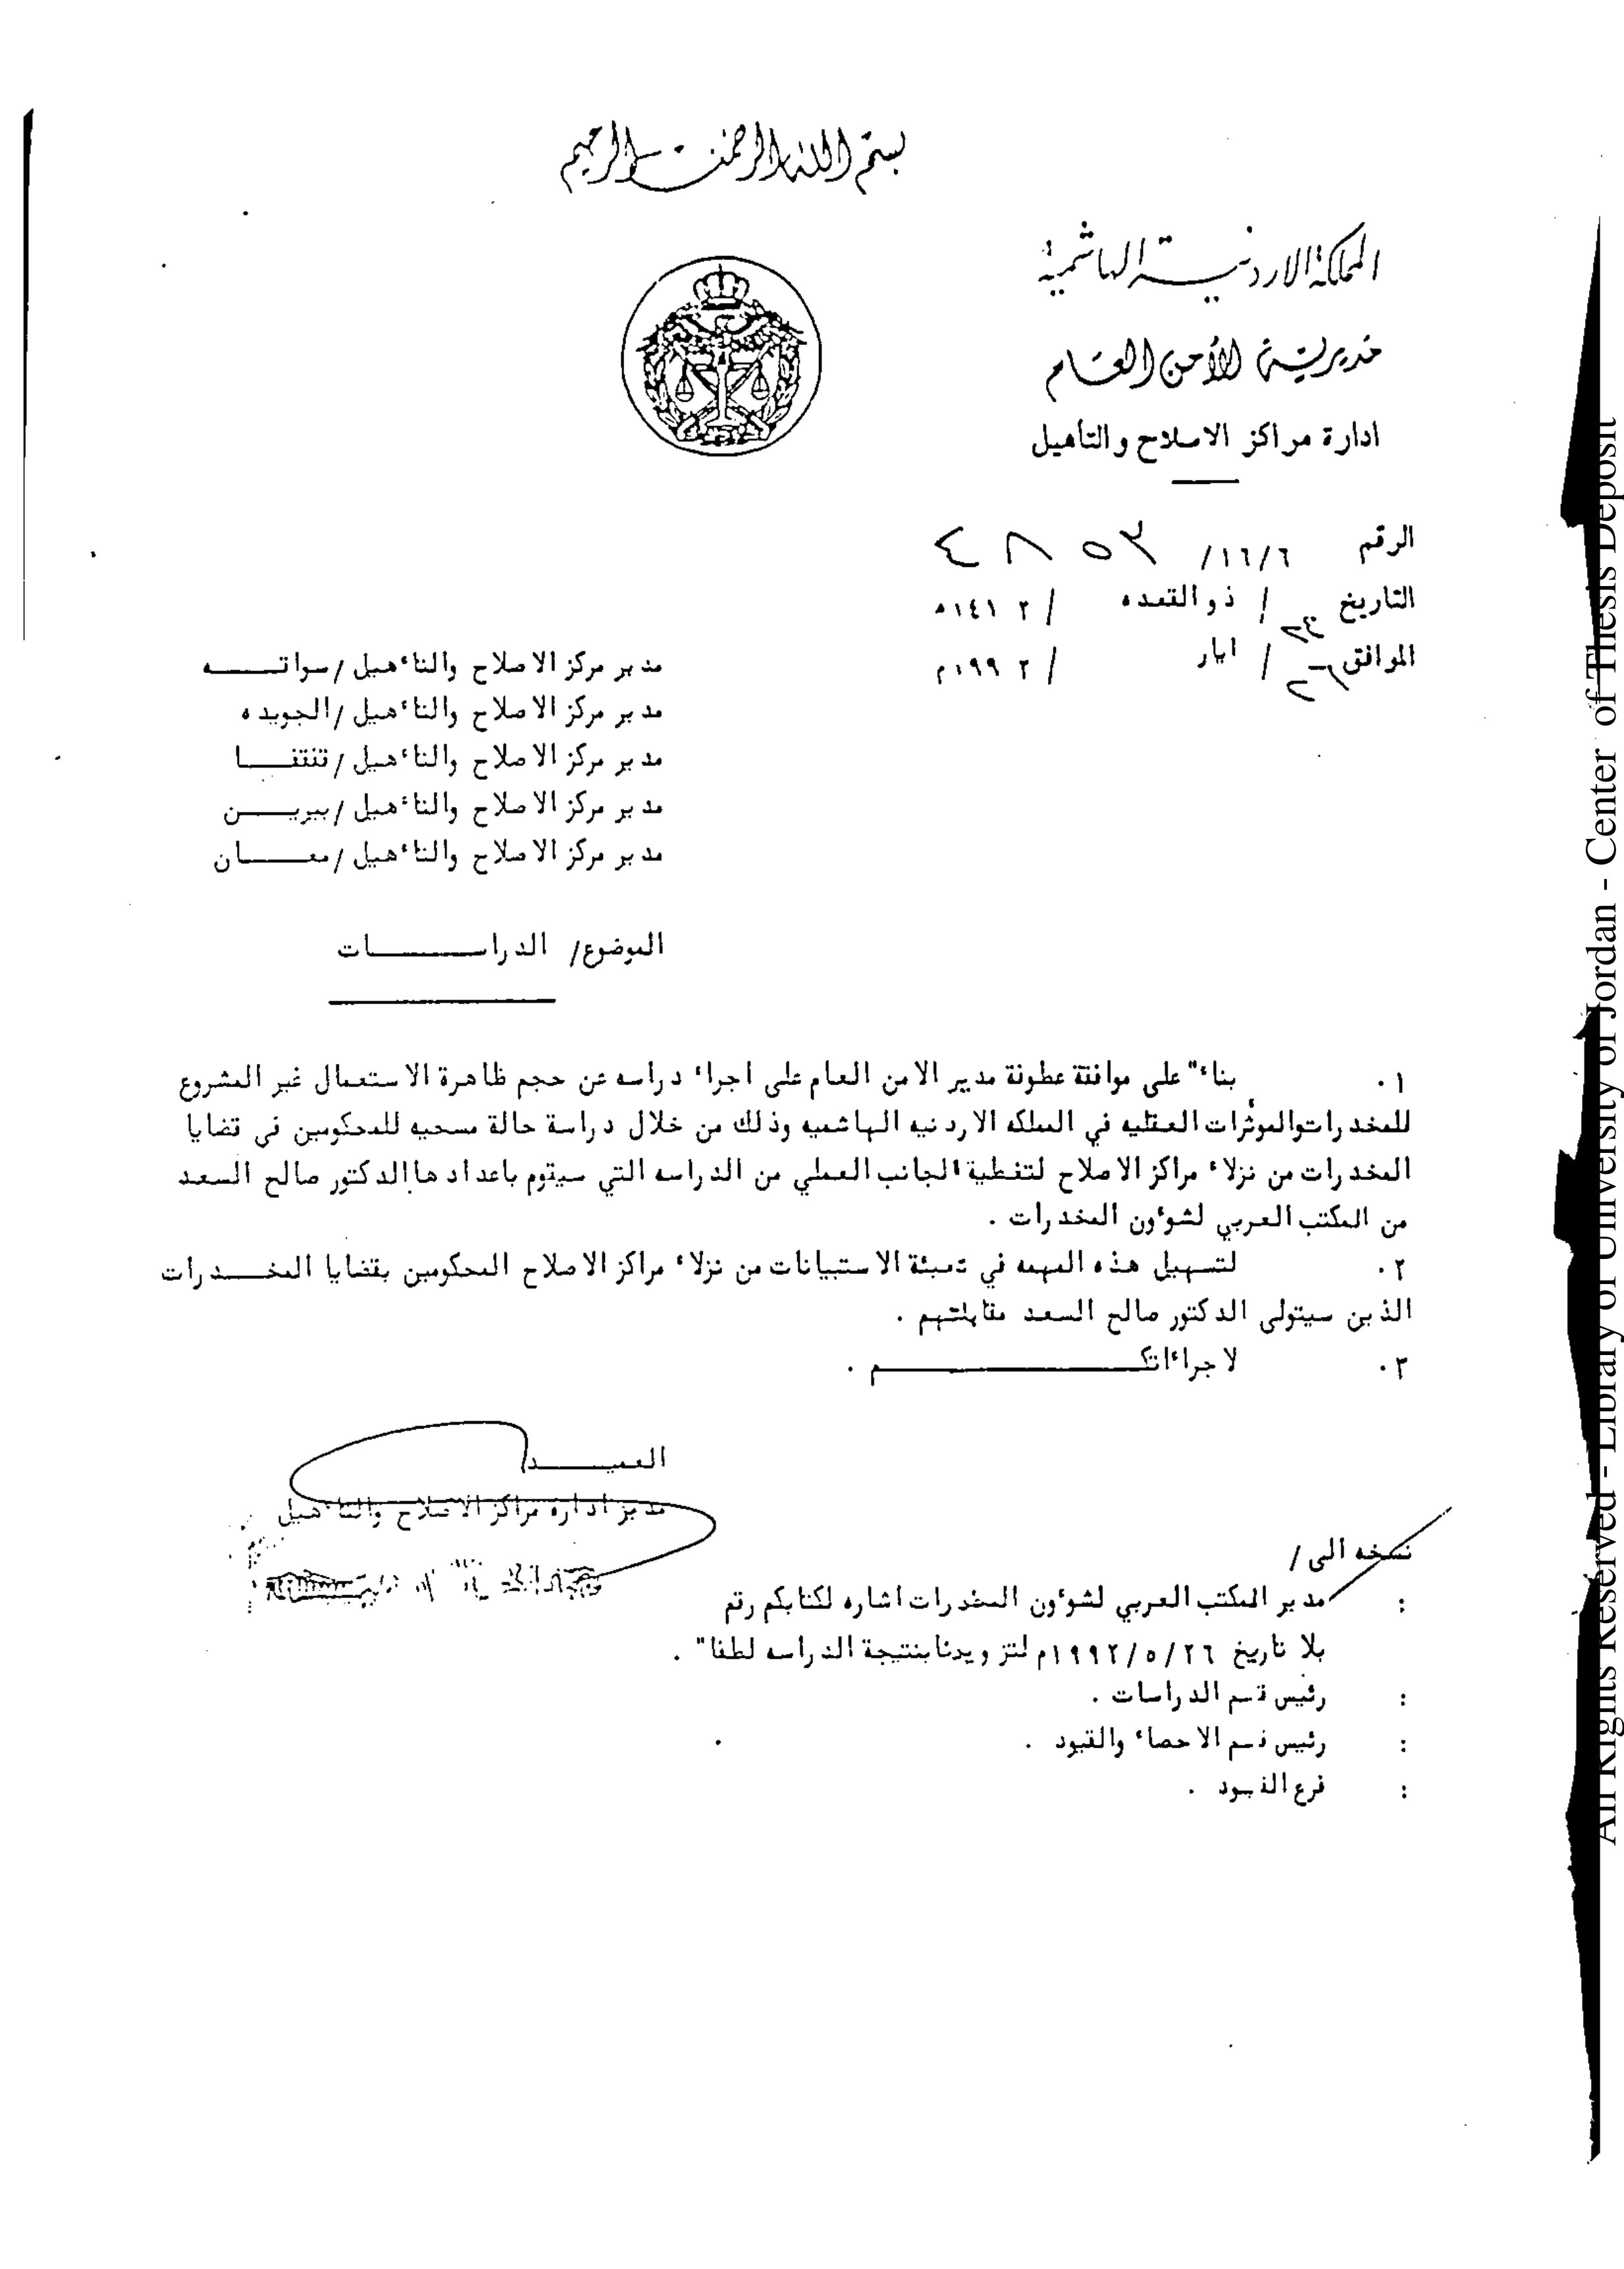 بسم الله الرحمن الرحيم
المملكة الاردنية الهاشمية
مديرية الأمن العام
ادارة مراكز الاصلاح والتأهيل
الرقم ١٦/٦/ ٤٨٥٣
التاريخ / ذوالقعده / ١٤١٢ه
الموافق / ايار / ١٩٩٢م
مدير مركز الاصلاح والتاءهيل /سواقــه
مدير مركز الاصلاح والتاءهيل /الجويده
مدير مركز الاصلاح والتاءهيل /قفقفــا
مدير مركز الاصلاح والتاءهيل /بيريــن
مدير مركز الاصلاح والتاءهيل /معــان
الموضوع/ الدراســـات
١. بناء" على موافقة عطوفة مدير الامن العام على اجراء دراسه عن حجم ظاهرة الاستعمال غير المشروع
للمخدرات والموثرات العقليه في المملكه الاردنيه الهاشميه وذلك من خلال دراسة حالة مسحيه للمحكومين في قضايا
المخدرات من نزلاء مراكز الاصلاح لتغطية الجانب العملي من الدراسه التي سيقوم باعدادها الدكتور صالح السعد
من المكتب العربي لشوءون المخدرات .
٢. لتسهيل هذه المهمه في تعبئة الاستبيانات من نزلاء مراكز الاصلاح المحكومين بقضايا المخــدرات
الذين سيتولى الدكتور صالح السعد مقابلتهم .
٣. لاجراءاتكـــــم .
العميــد
مدير ادارة مراكز الاصلاح والتاءهيل
نسخه الى /
: مدير المكتب العربي لشوءون المخدرات اشاره لكتابكم رقم
بلا تاريخ ١٩٩٢/٥/٢٦م لتزويدنا بنتيجة الدراسه لطفا" .
: رئيس قسم الدراسات .
: رئيس قسم الاحصاء والقيود .
: فرع القيود .
All Rights Reserved - Library of University of Jordan - Center of Thesis Deposit